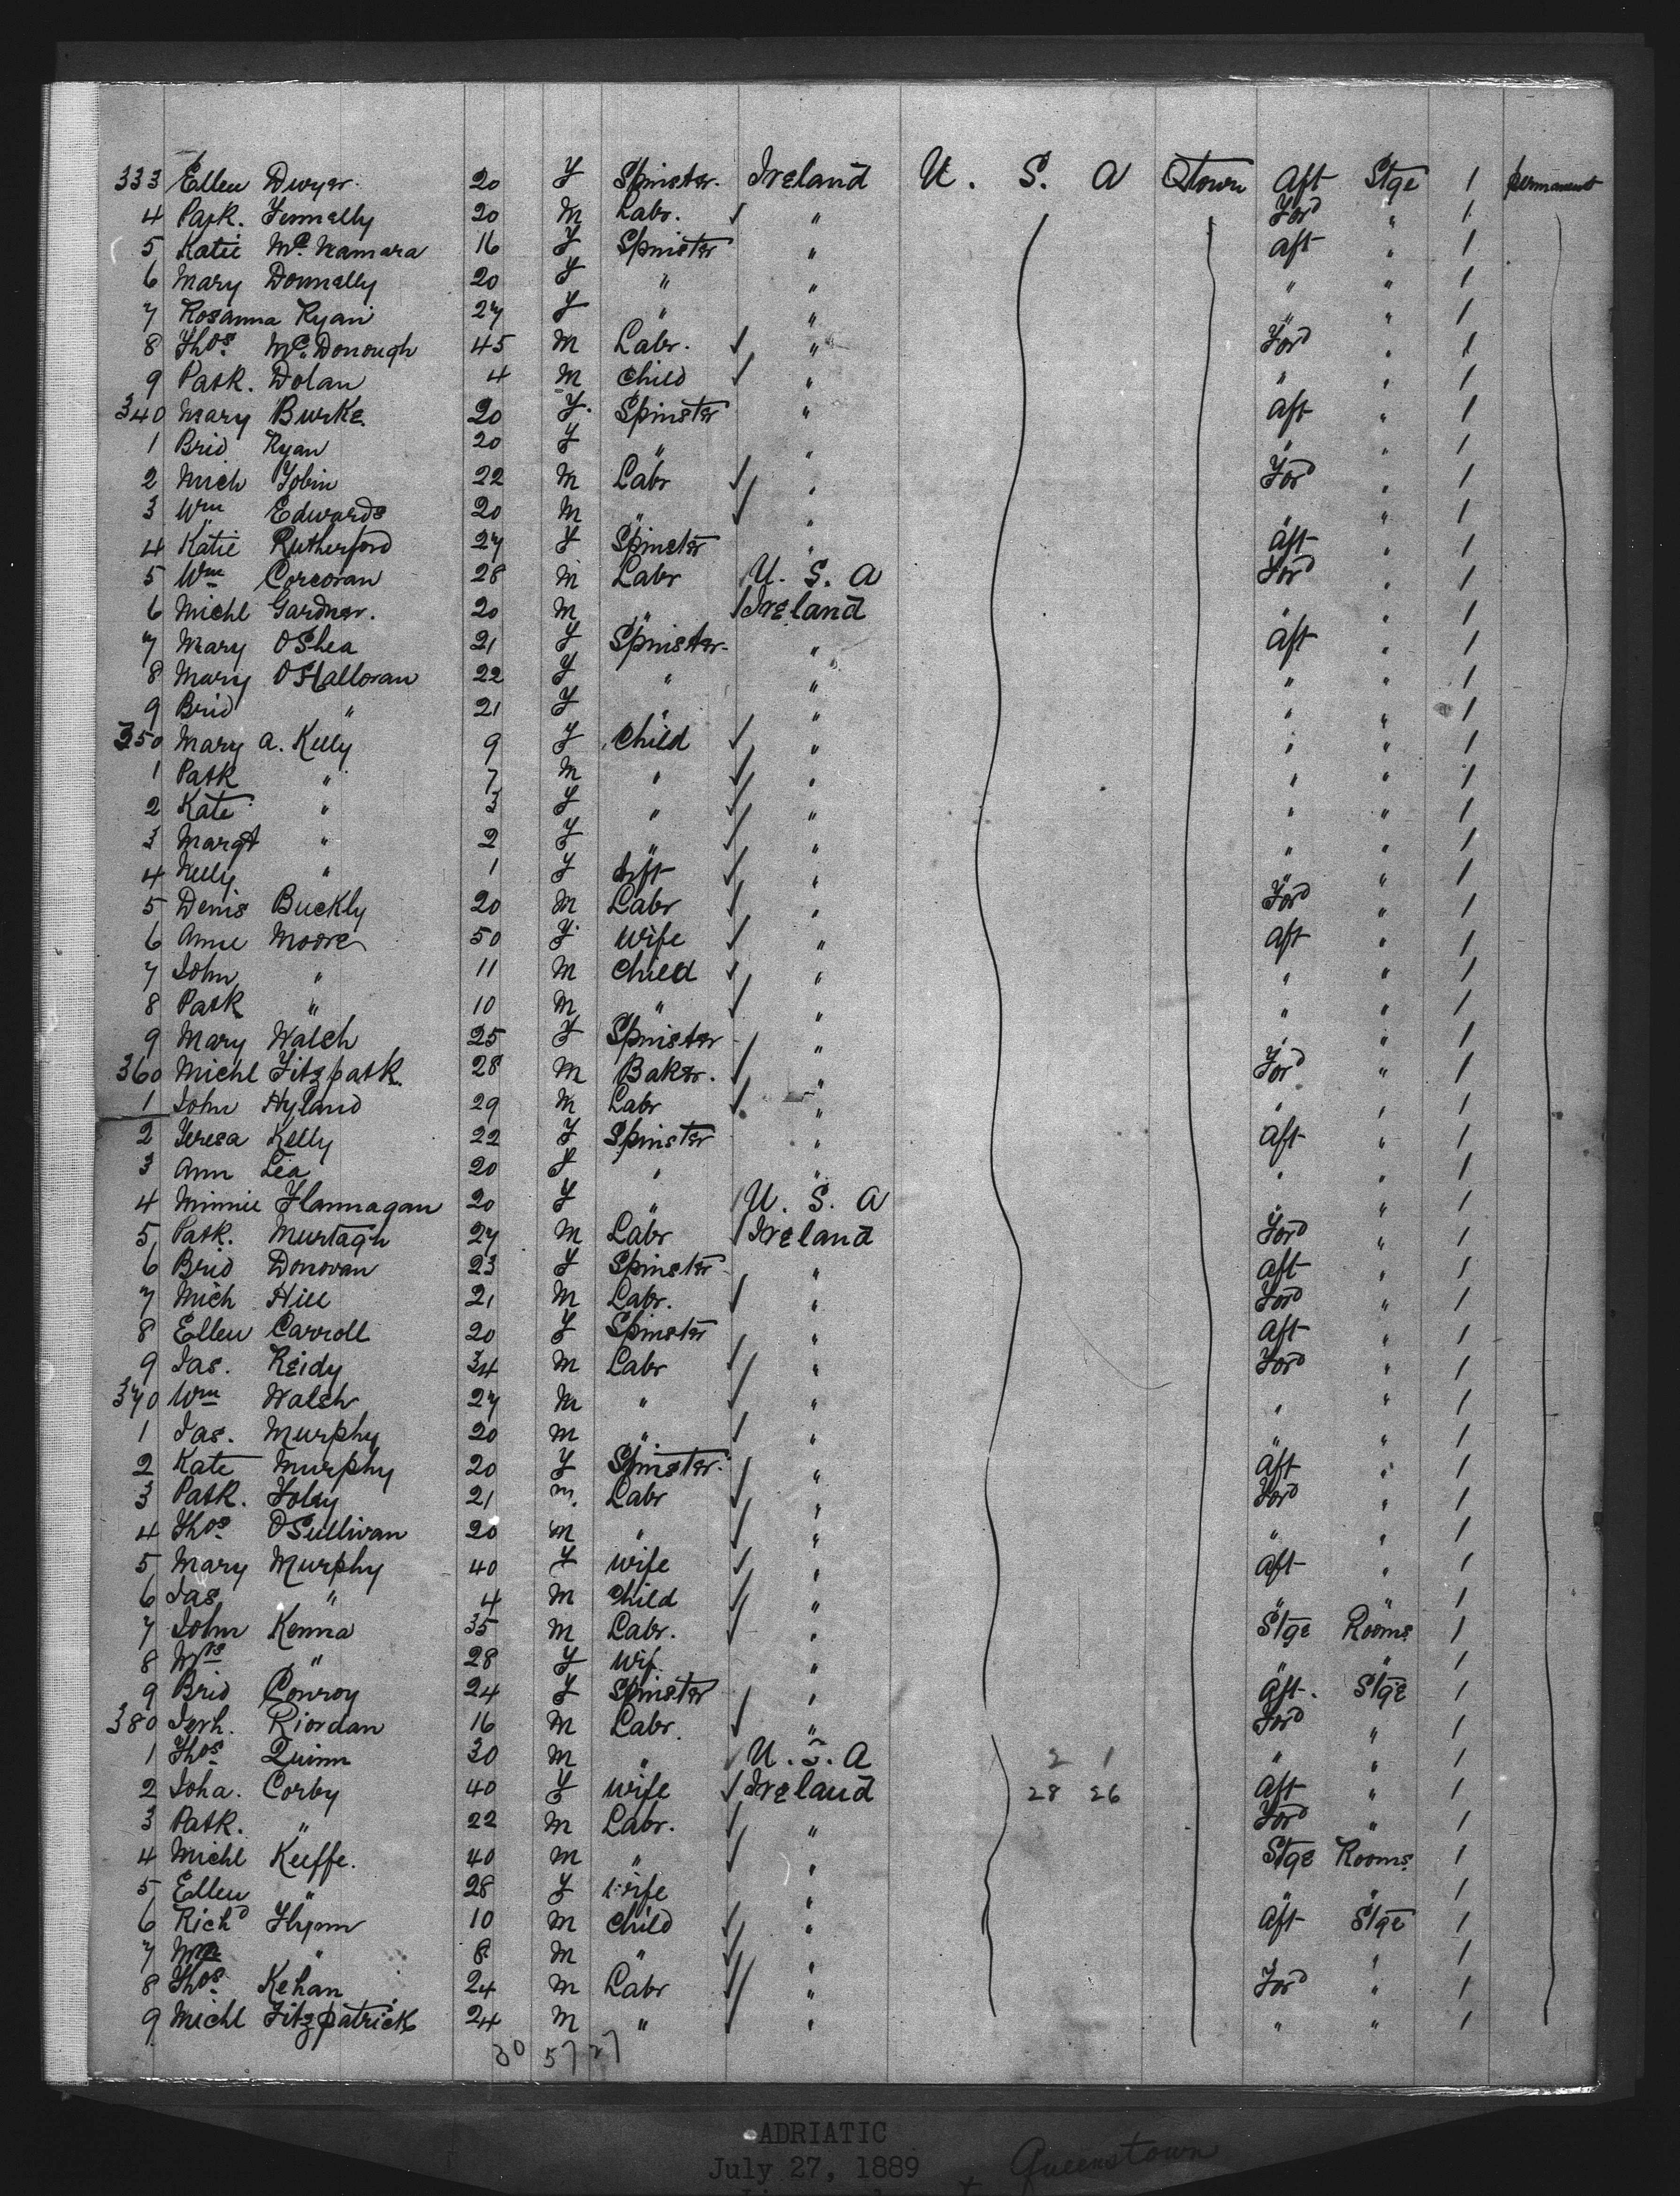 333 Ellen Dwyer. 20 F Spinster. Ireland U. S. A Qtown Aft Stge 1 permanent
4 Patk. Fennelly 20 M Labr. ✓ " Ford " 1
5 Katie Mc.Namara 16 F Spinster " aft " 1
6 Mary Donnelly 20 F " " " " 1
7 Rosanna Ryan 27 F " " " " 1
8 Thos. Mc.Donough 45 M Labr. ✓ " Ford " 1
9 Patk. Dolan 4 M Child ✓ " " " 1
340 Mary Burke. 20 F. Spinster " aft " 1
1 Brid Ryan 20 F " " " " 1
2 Mich Tobin 22 M Labr ✓ " Ford " 1
3 Wm Edwards 20 M " ✓ " " " 1
4 Katie Rutherford 27 F Spinster " aft " 1
5 Wm Corcoran 28 M Labr U. S. A Ford " 1
6 Michl Gardner. 20 M " ✓ Ireland " " 1
7 Mary OShea 21 F Spinster " Aft " 1
8 Mary OHalloran 22 F " " " " 1
9 Brid " 21 F " " " " 1
350 Mary A. Kelly 9 F Child ✓ " " " 1
1 Patk " 7 M " ✓ " " " 1
2 Kate " 3 F " ✓ " " " 1
3 Margt " 2 F " ✓ " " " 1
4 Nelly " 1 F Inft ✓ " " " 1
5 Denis Buckly 20 M Labr ✓ " Ford " 1
6 Anne Moore 50 F. Wife ✓ " Aft " 1
7 John " 11 M Child ✓ " " " 1
8 Patk " 10 M " ✓ " " " 1
9 Mary Walsh 25 F Spinster " " " 1
360 Michl Fitzpatk. 28 M Baker. ✓ " Ford " 1
1 John Hyland 29 M Labr ✓ " " " 1
2 Teresa Kelly 22 F Spinster " Aft " 1
3 Ann Lea 20 F " " " " 1
4 Minnie Flannagan 20 F " ✓ U. S. A " " 1
5 Patk. Murtagh 27 M Labr ✓ Ireland Ford " 1
6 Brid Donovan 23 F Spinster " aft " 1
7 Mich Hill 21 M Labr. ✓ " Ford " 1
8 Ellen Carroll 20 F Spinster " aft " 1
9 Jas. Reidy 34 M Labr ✓ " Ford " 1
370 Wm Walsh 27 M " ✓ " " " 1
1 Jas. Murphy 20 M " ✓ " " " 1
2 Kate Murphy 20 F Spinster. " aft " 1
3 Patk. Foley 21 M. Labr ✓ " Ford " 1
4 Thos OSullivan 20 M " ✓ " " " 1
5 Mary Murphy 40 F Wife ✓ " aft " 1
6 Jas " 4 M Child ✓ " " " 1
7 John Kenna 35 M Labr. ✓ " Stge Rooms 1
8 Mrs " 28 F Wif " " " 1
9 Brid Conroy 24 F Spinster " Aft. Stge 1
380 Jerh. Riordan 16 M Labr. ✓ " Ford " 1
1 Thos Quinn 30 M " ✓ U. S. A 2 1 " " 1
2 Joha. Corby 40 F Wife ✓ Ireland 28 26 Aft " 1
3 Patk. " 22 M Labr. ✓ " Ford " 1
4 Michl Keeffe. 40 M " ✓ " Stge Rooms 1
5 Ellen " 28 F Wife " " " 1
6 Richd Flynn 10 M Child ✓ " Aft Stge 1
7 Wm " 8 M " ✓ " " " 1
8 Thos. Kehan 24 M Labr ✓ " Ford " 1
9 Michl Fitzpatrick 24 M " ✓ " " " 1
30 57 27
ADRIATIC
July 27, 1889
Queenstown